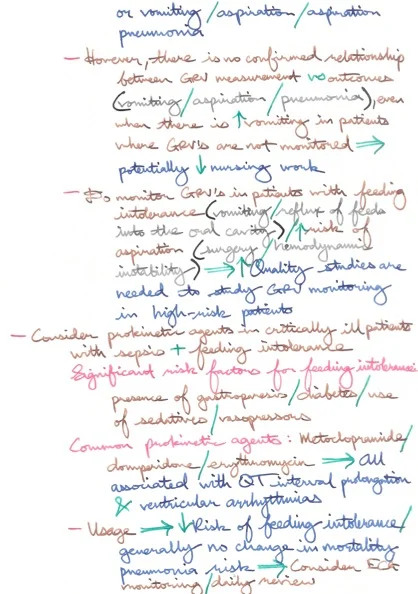 or vomiting/aspiration/aspiration
pneumonia
- However, there is no confirmed relationship
between GRV measurement vs outcomes
(vomiting/aspiration/pneumonia), even
when there is ↑ vomiting in patients
where GRV's are not monitored ⇒
potentially ↓ nursing work
- monitor GRV's in patients with feeding
intolerance (vomiting/reflux of feeds
into the oral cavity)/↑ risk of
aspiration (surgery/hemodynamic
instability) ⇒ ↑ Quality studies are
needed to study GRV monitoring
in high-risk patients
- Consider prokinetic agents in critically ill patients
with sepsis + feeding intolerance
Significant risk factors for feeding intolerance:
presence of gastroparesis/diabetes/use
of sedatives/vasopressors
Common prokinetic agents: Metoclopramide/
domperidone/erythromycin → All
associated with QT interval prolongation
& ventricular arrhythmias
- Usage ⇒ ↓ Risk of feeding intolerance/
generally no change in mortality
pneumonia risk → Consider ECG
monitoring/daily review